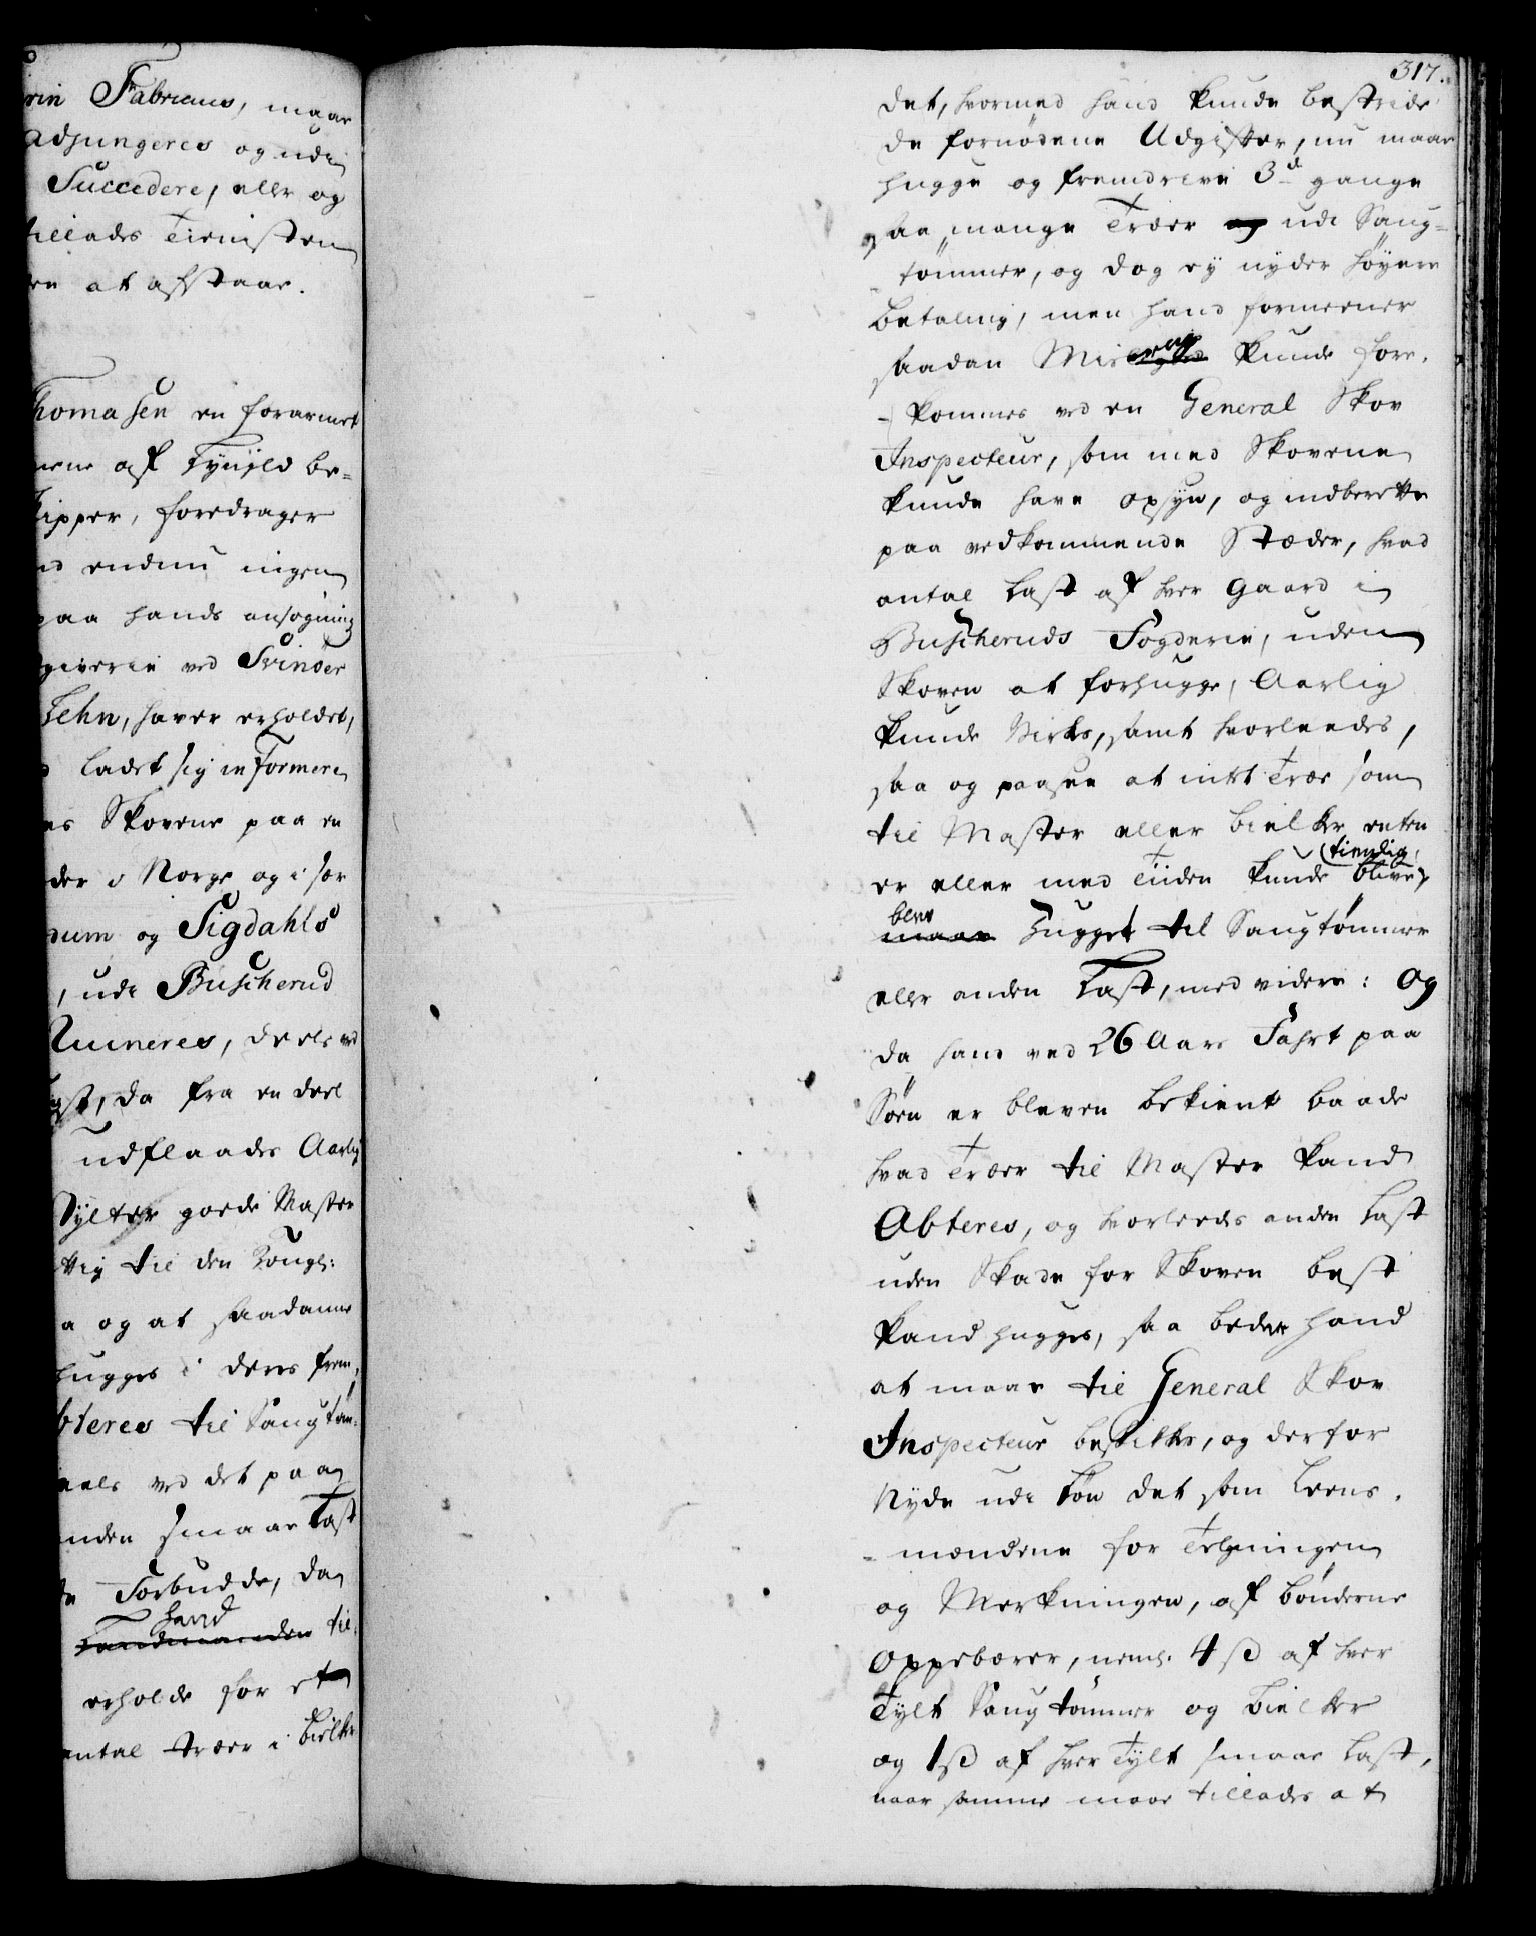 rin Fabricius, maae
Adjungeres og udi
Succedere, eller og
tillades Tienisten
at afstaae.
Thomasen en forarmet
af
Skipper, foredrager
endnu ingen
paa hands ansøgning
ved Svinöer
Lehn, haver erholdet,
ladet sig informere
Skovene paa en
der i Norge og i sær
dum og Sigdahls
, udi Buscherud
Ruineres, deels ved
ost, da fra en deel
udflaades Aarlig
Tylter goede Master
til den Kongl:
a og at saadanne
hugges i deres frem,
bteres til Saugtöm:
deels ved det paa
anden smaae Last
Forbudde, da
hand
Landmanden til,
erholde for et
antal træer i bielker
317.
det, hvormed hand kunde bestride
de fornødene Udgifter, nu maae
hugge og fremdrive 3d gange
saa mange Træer og udi Saug-
tömmer, og dog ey nyder höyere
betaling, men hand formeener
saadan Misbrug kunde fore-
-kommes ved en General Skov
Inspecteur, som med Skovene
kunde have opsyn, og indberette
paa vedkommende Stæder, hvad
antal Last af hver Gaard i
Buscheruds Fogderie, uden
Skoven at forhugge, Aarlig
kunde Virkes, samt hvorleedes,
saa og paasee at intet Træe som
til Master eller bielker enten
tienlig,
er eller med Tiiden kunde blive,
blev
maae Hugget til Saugtömmer
eller anden Last, med videre: Og
da hand ved 26 Aars Fahrt paa
Söen er bleven bekient baade
hvad Træer til Master kand
Abteres, og hvorleedes anden Last
uden Skade for Skoven best
kand hugges, saa beder hand
at maae til General Skov
Inspecteur beskikkes, og derfor
Nyde udi Lön det som Leens-
-mændene for Telgningen
og Merkningen, af bönderne
Oppebærer, neml. 4 ß af hver
Tylt Saugtömmer og Bielker
og 1 ß af hver Tylt smaae Last,
naar samme maae tillades at